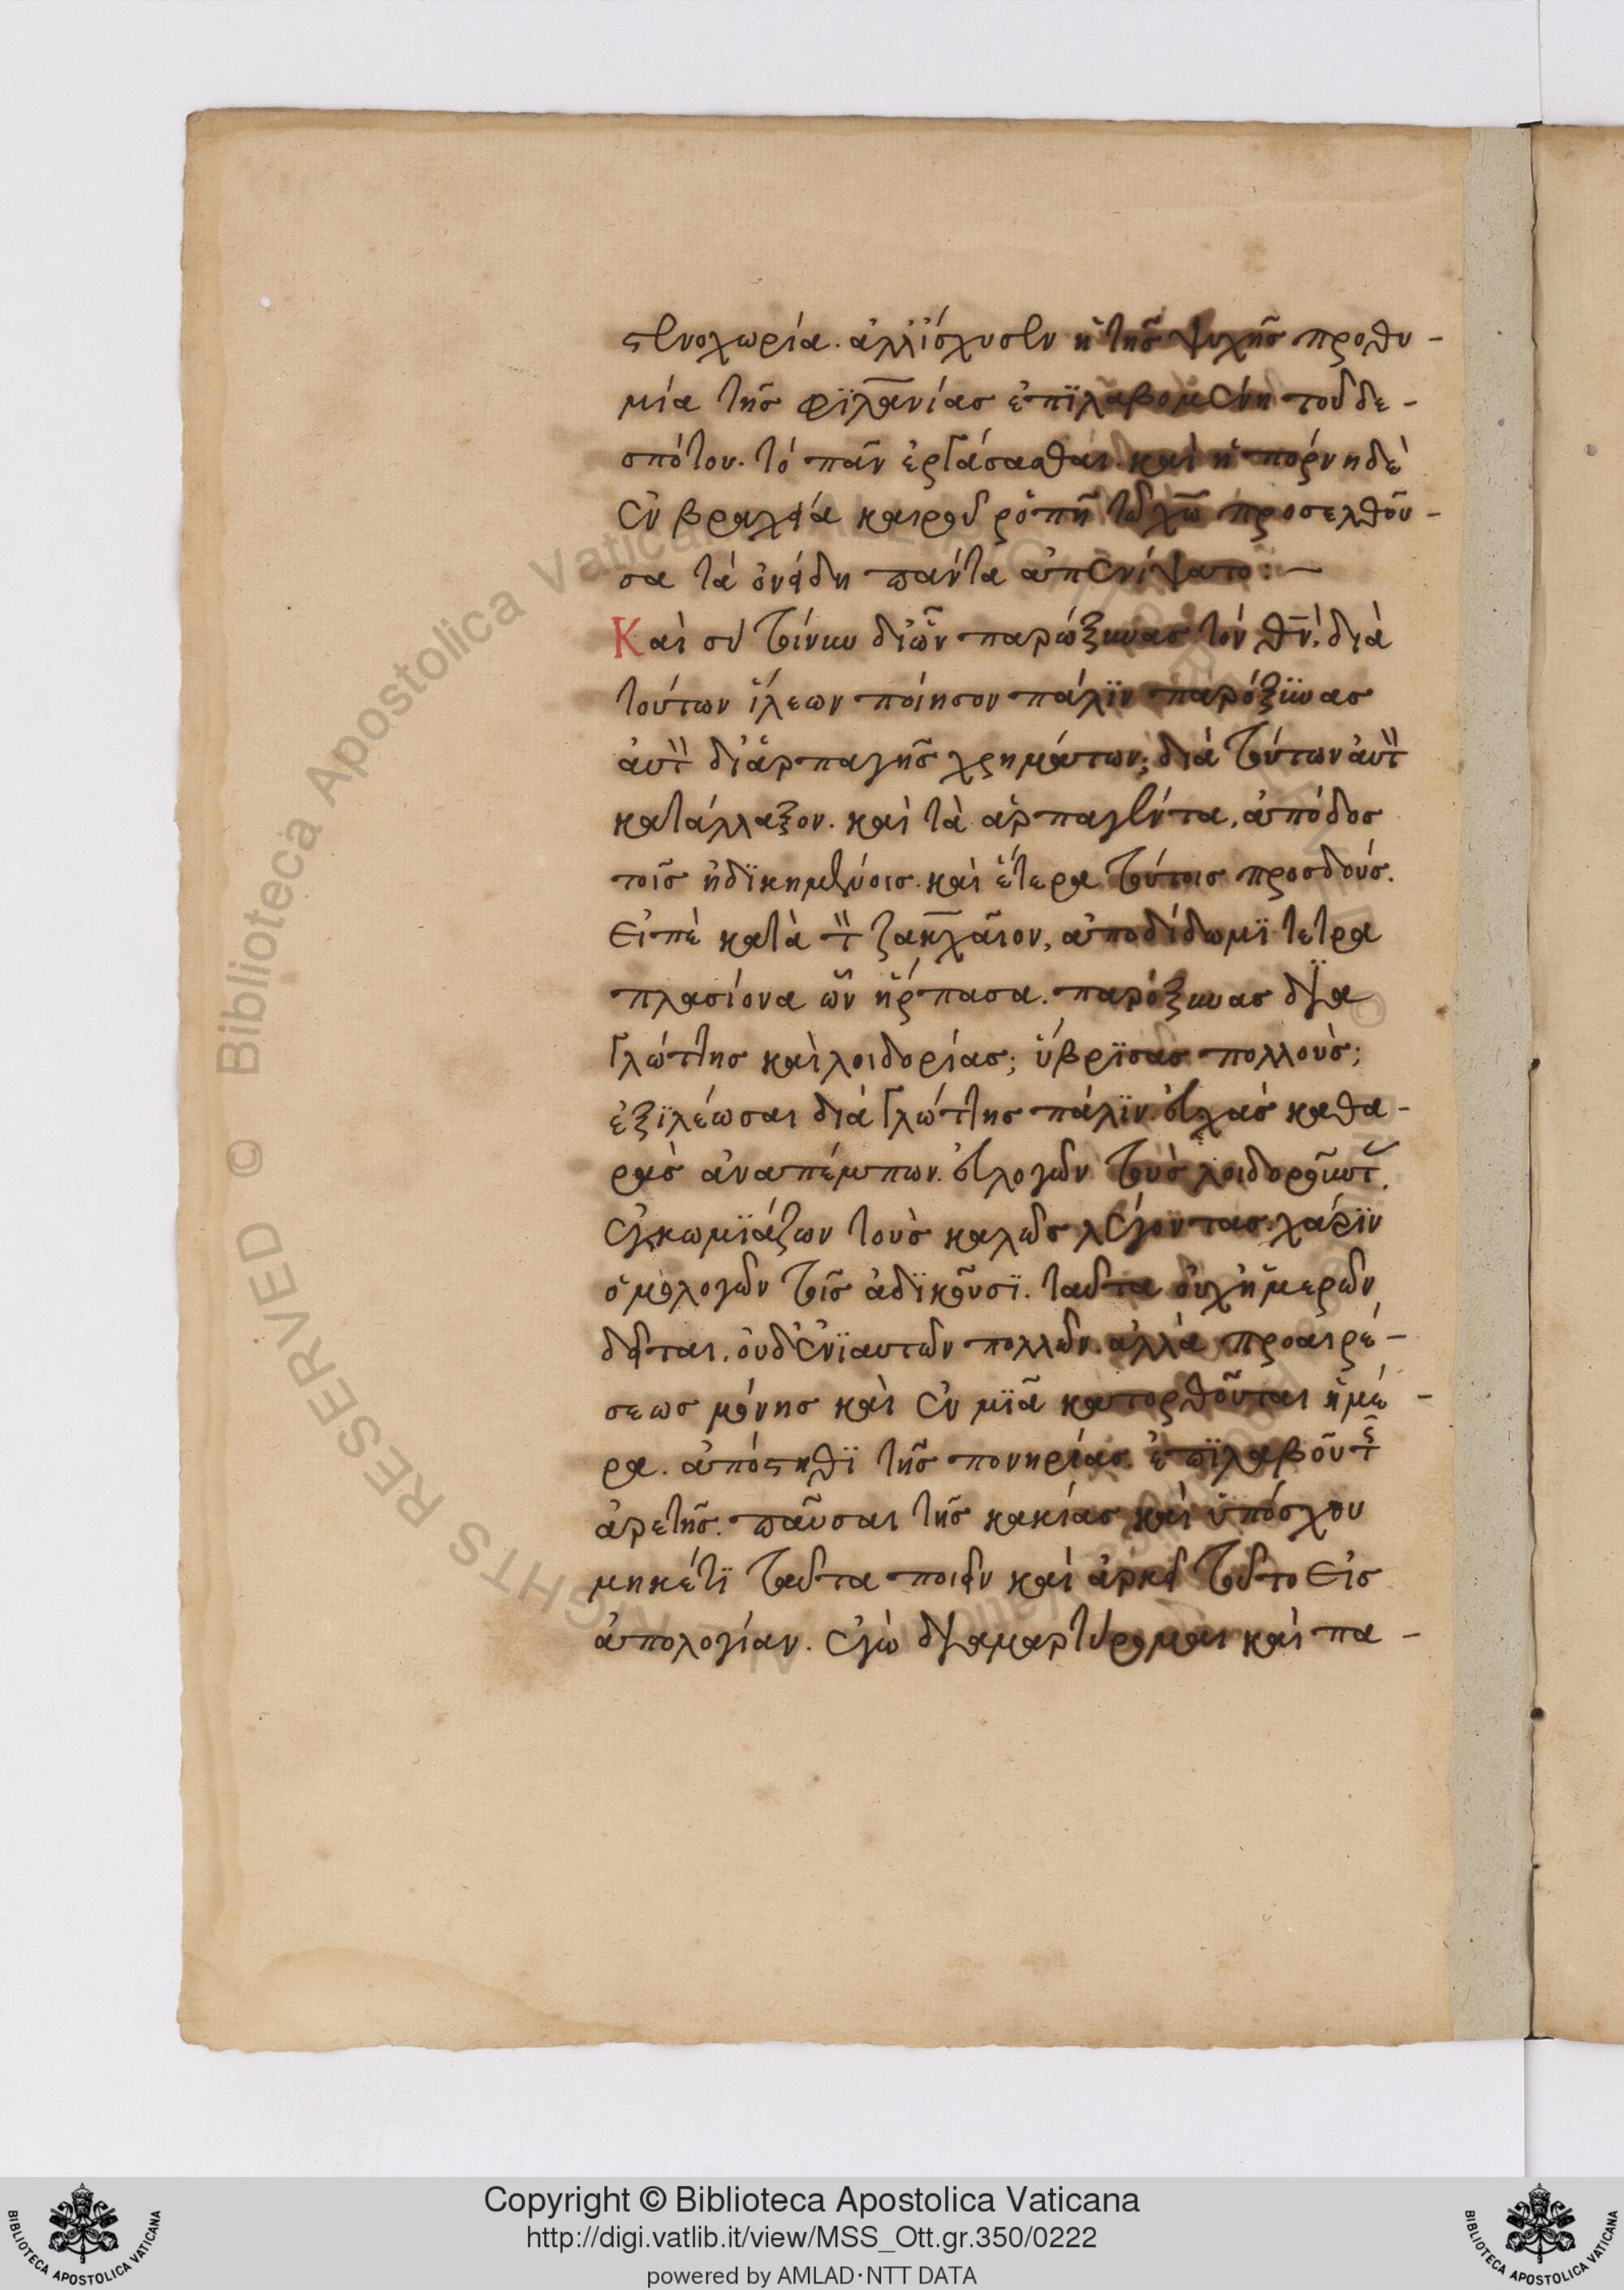 στενοχωρία. ἀλλ' ἴσχυσεν ἡ τῆς ψυχῆς προθυ-
μία τῆς φϊλανίας ἐπϊλαβομένη τοῦ δε-
σπότου. τὸ πᾶν ἐργάσασθαι. καὶ ἡ πόρνη δὲ
ἐν βραχεία καιροῦ ῥοπῆ τῶ χω προσελθοῦ-
σα τὰ ὀνείδη πάντα ἀπενίψατο:—
Καὶ σὺ τοίνυν δι' ὧν παρώξυνας τὸν θν, διὰ
τούτων ἵλεων ποίησον πάλϊν παρόξϋνας
αὐτ δι' ἁρπαγῆς χρημάτων; διὰ τούτων αὐτ
κατάλλαξον. καὶ τὰ ἁρπαγέντα, ἀπόδος
τοῖς ἠδϊκημένοις. καὶ ἕτερα τούτοις προσδούς.
Εἰπὲ κατὰ τ ζακχαῖον, ἀποδίδωμϊ τετρα
πλασίονα ὧν ἥρπασα. παρόξυνας διὰ
γλώττης καὶ λοιδορίας; ὕβρϊσας πολλούς;
ἐξϊλέωσαι διὰ γλώττης πάλϊν. εὐχὰς καθα-
ρὰς ἀναπέμπων. εὐλογῶν τοὺς λοιδοροῦντ.
ἐγκωμϊάζων τοὺς καλῶς λέγοντας. χάρϊν
ὁμολογῶν τοῖς ἀδϊκοῦσϊ. ταῦτα οὐχ ἡμερῶν
δεῖται. οὐδ' ἐνϊαυτῶν πολλῶν. ἀλλὰ προαιρέ-
σεως μόνης καὶ ἐν μϊᾶ κατορθοῦται ἡμέ-
ρα. ἀπόστηθϊ τῆς πονηρίας. ἐπϊλαβοῦ τ
ἀρετῆς. παῦσαι τῆς κακίας καὶ ὑπόσχου
μηκέτϊ ταῦτα ποιεῖν καὶ ἀρκεῖ τοῦτο εἰς
ἀπολογίαν. ἐγὼ διαμαρτύρομαι καὶ πα-
© Biblioteca Apostolica Vaticana
RIGHTS RESERVED
BIBLIOTECA APOSTOLICA VATICANA
Copyright © Biblioteca Apostolica Vaticana
http://digi.vatlib.it/view/MSS_Ott.gr.350/0222
powered by AMLAD·NTT DATA
BIBLIOTECA APOSTOLICA VATICANA